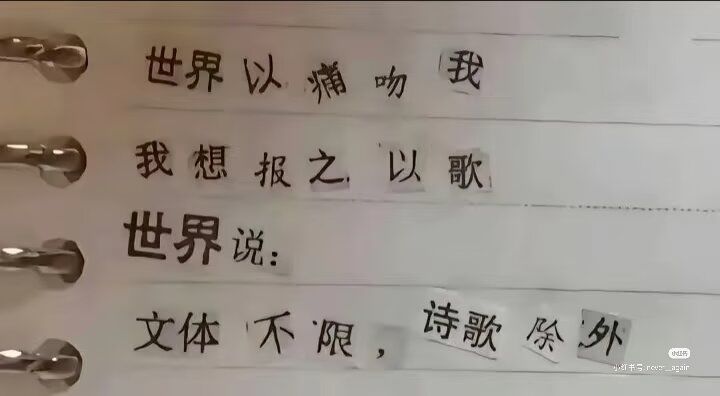 世界以痛吻我
我想报之以歌
世界说：
文体不限，诗歌除外
小红书
小红书号:never__again